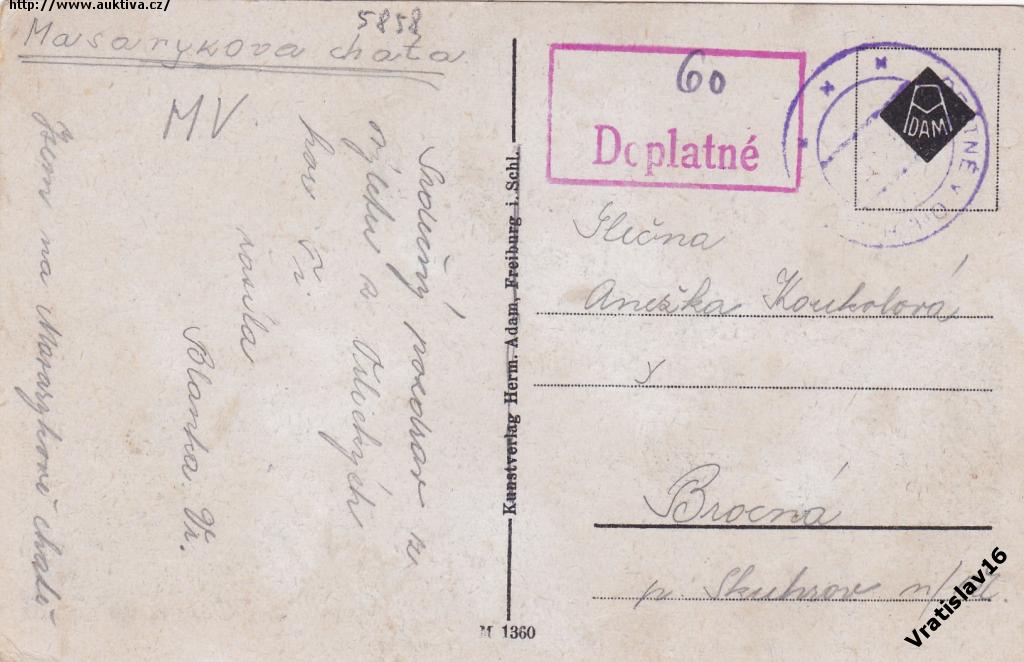 http://www.auktiva.cz/
5858
Masarykova chata
MV
Srdečný pozdrav z
výletu z Orlických
hor Ti
posílá
Blanka Vř.
Jsem na Masarykově chatě
Kunstverlag Herm. Adam, Freiburg i. Schl.
M 1360
60
Doplatné
ADAM
Slečna
Anežka Koukolová
v
Brocná
p. Skuhrov n/Bě.
Vratislav16